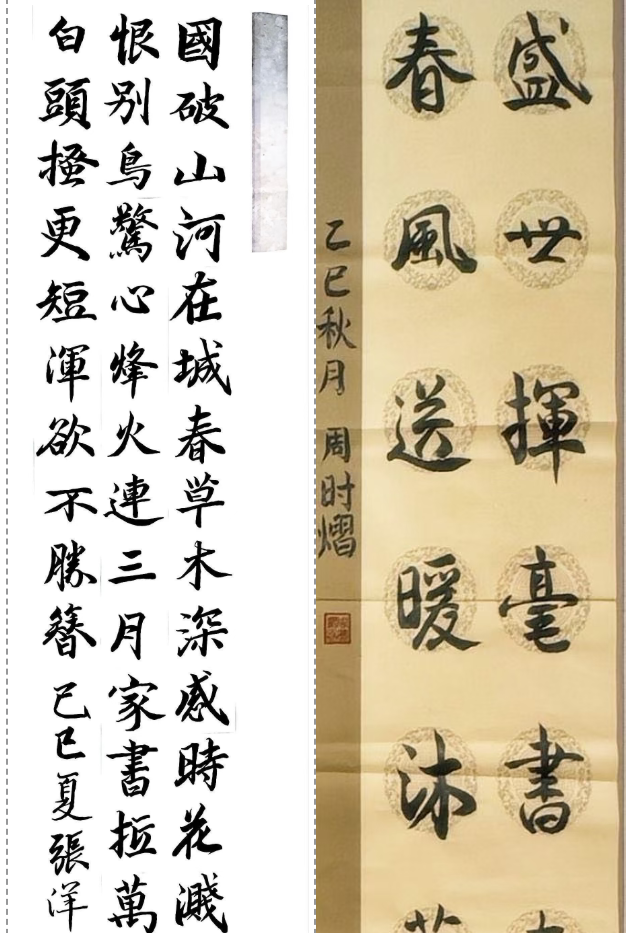 國破山河在城春草木深感時花濺
恨别鳥驚心烽火連三月家書抵萬
白頭搔更短渾欲不勝簪 己巳夏張洋
盛世揮毫書
春風送暖沐
乙巳秋月 周时熠